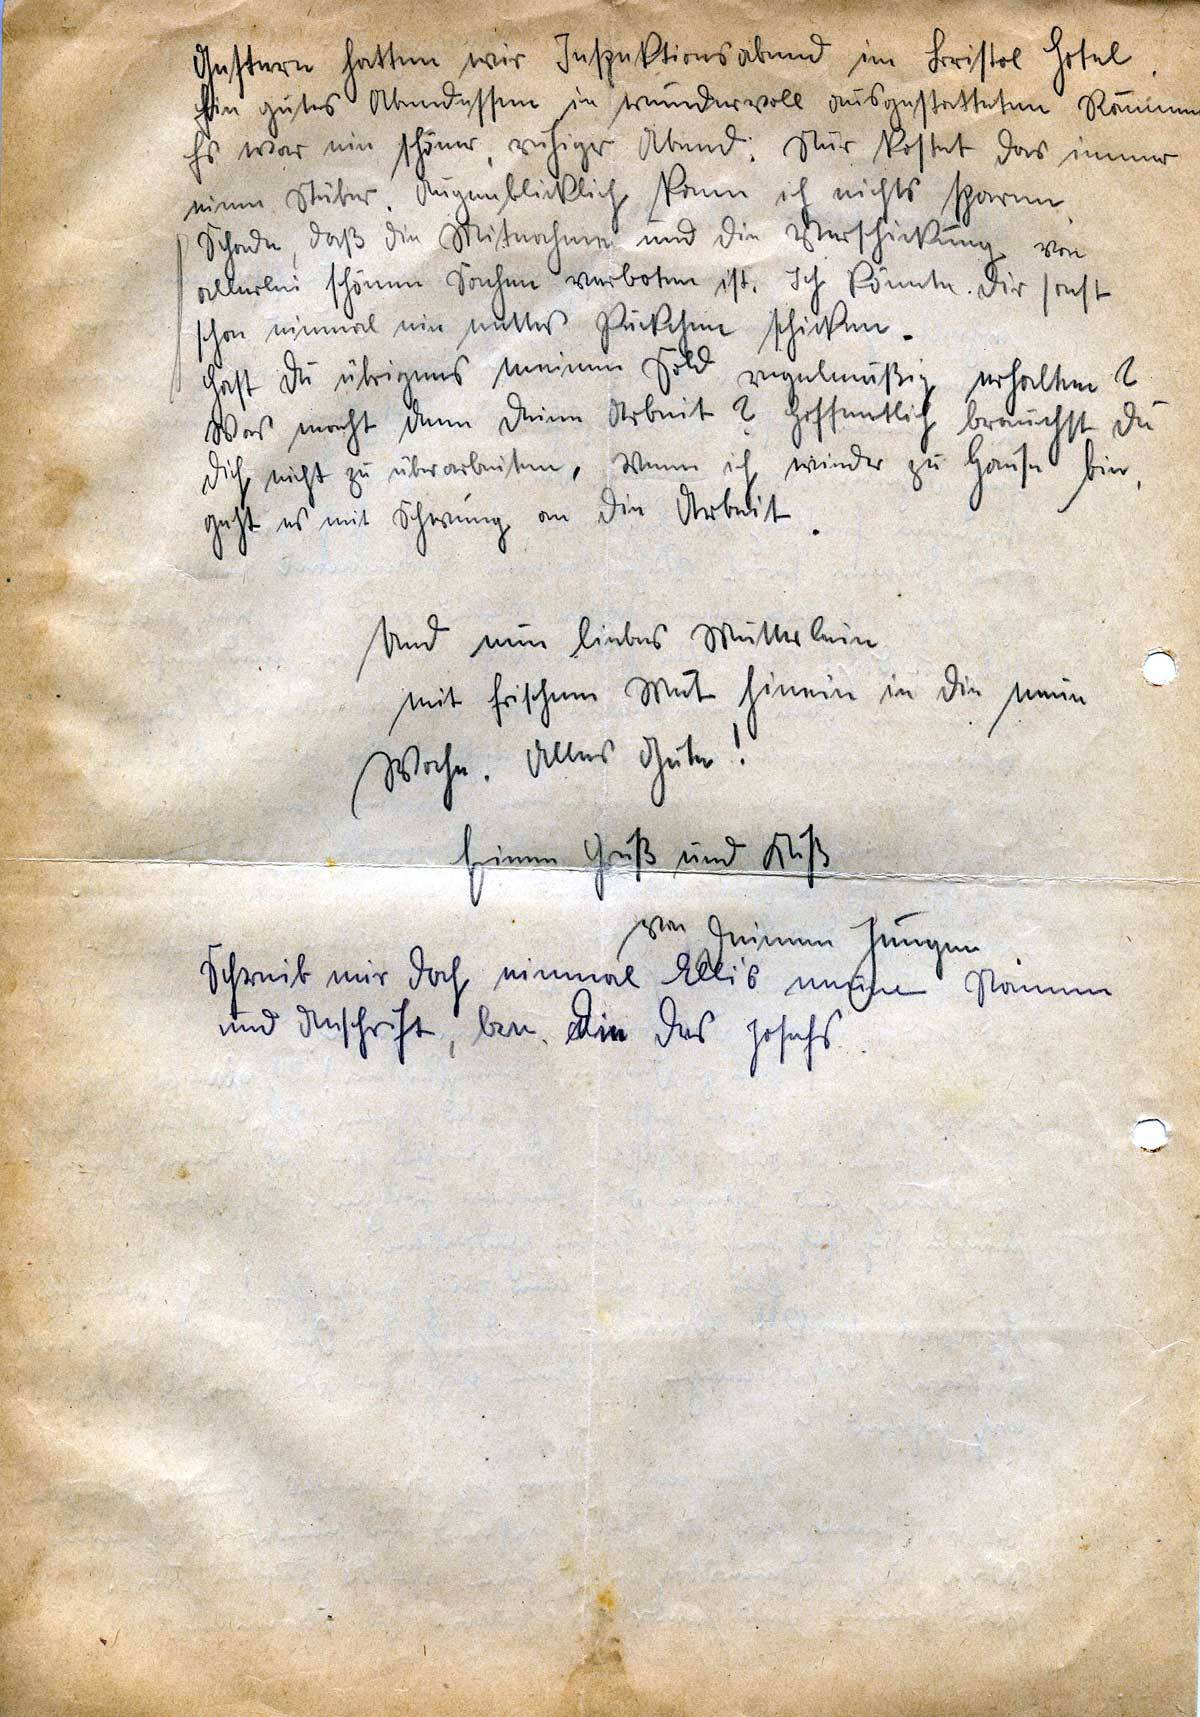 Gestern hatten wir Inspektionsabend im Bristol Hotel.
Ein gutes Abendessen in wundervoll ausgestatteten Räumen
Es war ein schöner, ruhiger Abend. Nur kostet das immer
einen Stüber. Augenblicklich kann ich nichts sparen.
Schade, daß die Mitnahme und die Verschickung von
allerlei schönen Sachen verboten ist. Ich könnte Dir sonst
schon einmal ein nettes Päckchen schicken.
Hast Du übrigens meinen Sold regelmäßig erhalten?
Was macht denn Deine Arbeit? Hoffentlich brauchst Du
Dich nicht zu überarbeiten. Wenn ich wieder zu Hause bin,
geht es mit Schwung an die Arbeit.
Und nun liebes Mütterlein
mit frischem Mut hinein in die neue
Woche. Alles Gute!
Einen Gruß und Kuß
von Deinem Jungen
Schreib mir doch einmal Elli's neuen Namen
und Anschrift, bzw. die des Josefs.